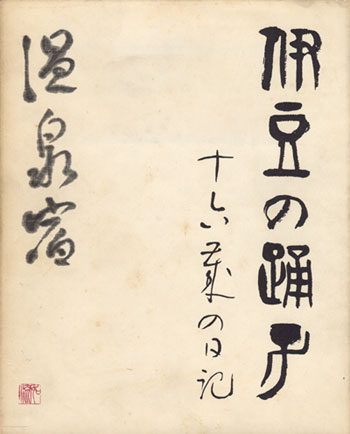 伊豆の踊子
十六歳の日記
温泉宿